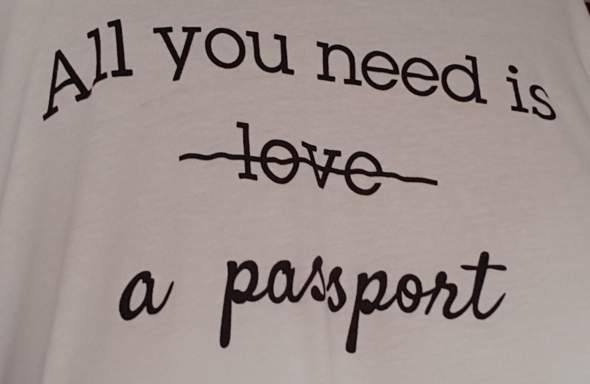 All you need is
love
a passport